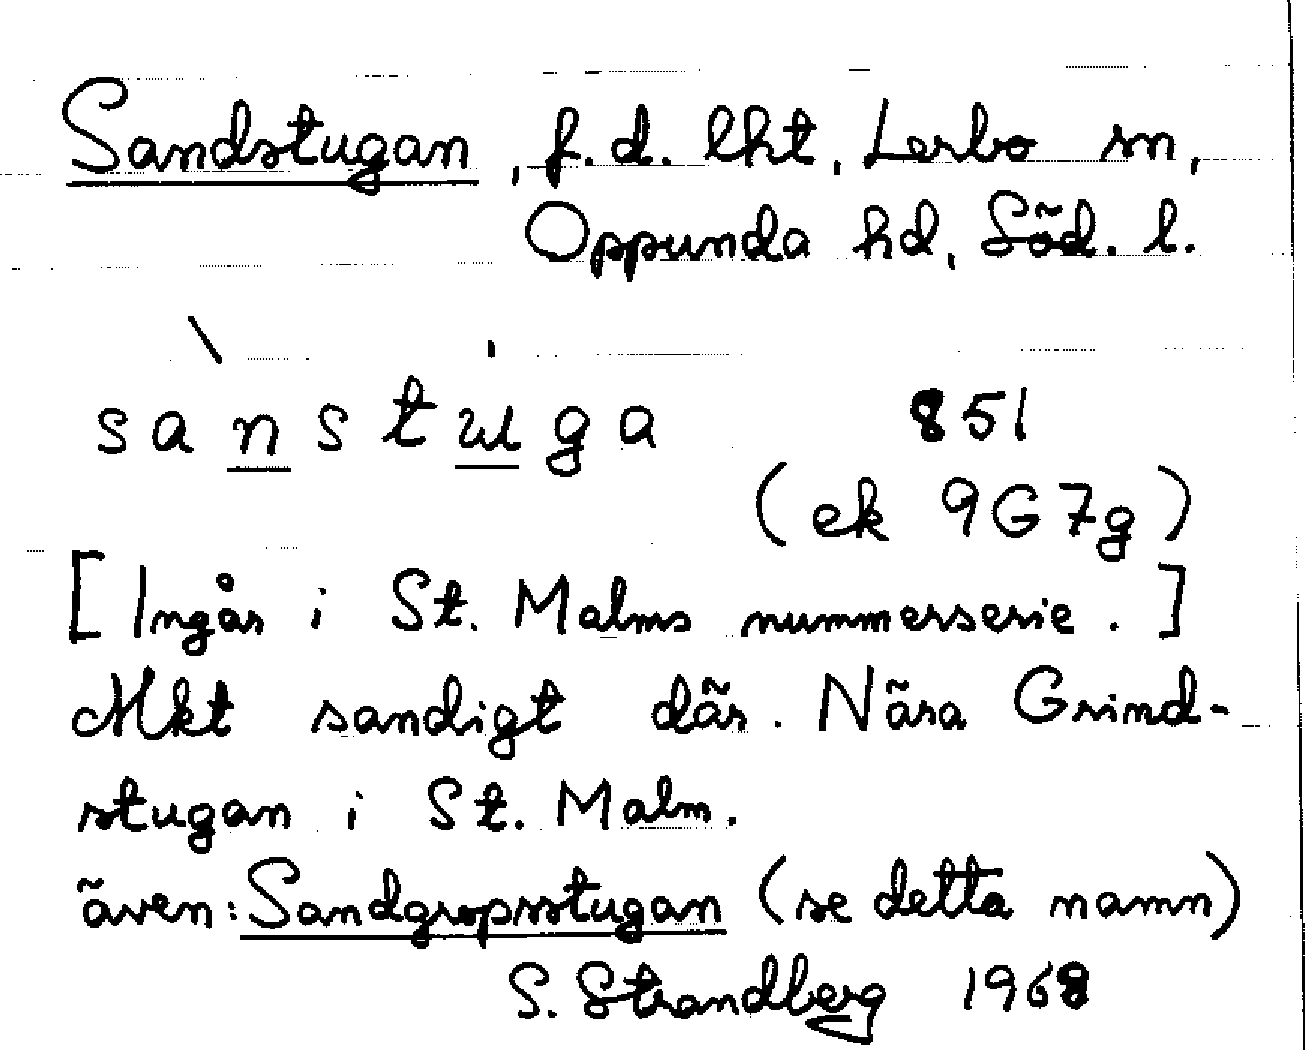 Sandstugan, f.d. lht, Lerbo sn,
Oppunda hd, Söd. l.
sànstu̍ga 851
(ek 9G7g)
[Ingår i St. Malms nummerserie.]
Mkt sandigt där. Nära Grind-
stugan i St. Malm.
även: Sandgropsstugan (se detta namn)
S. Strandberg 1968